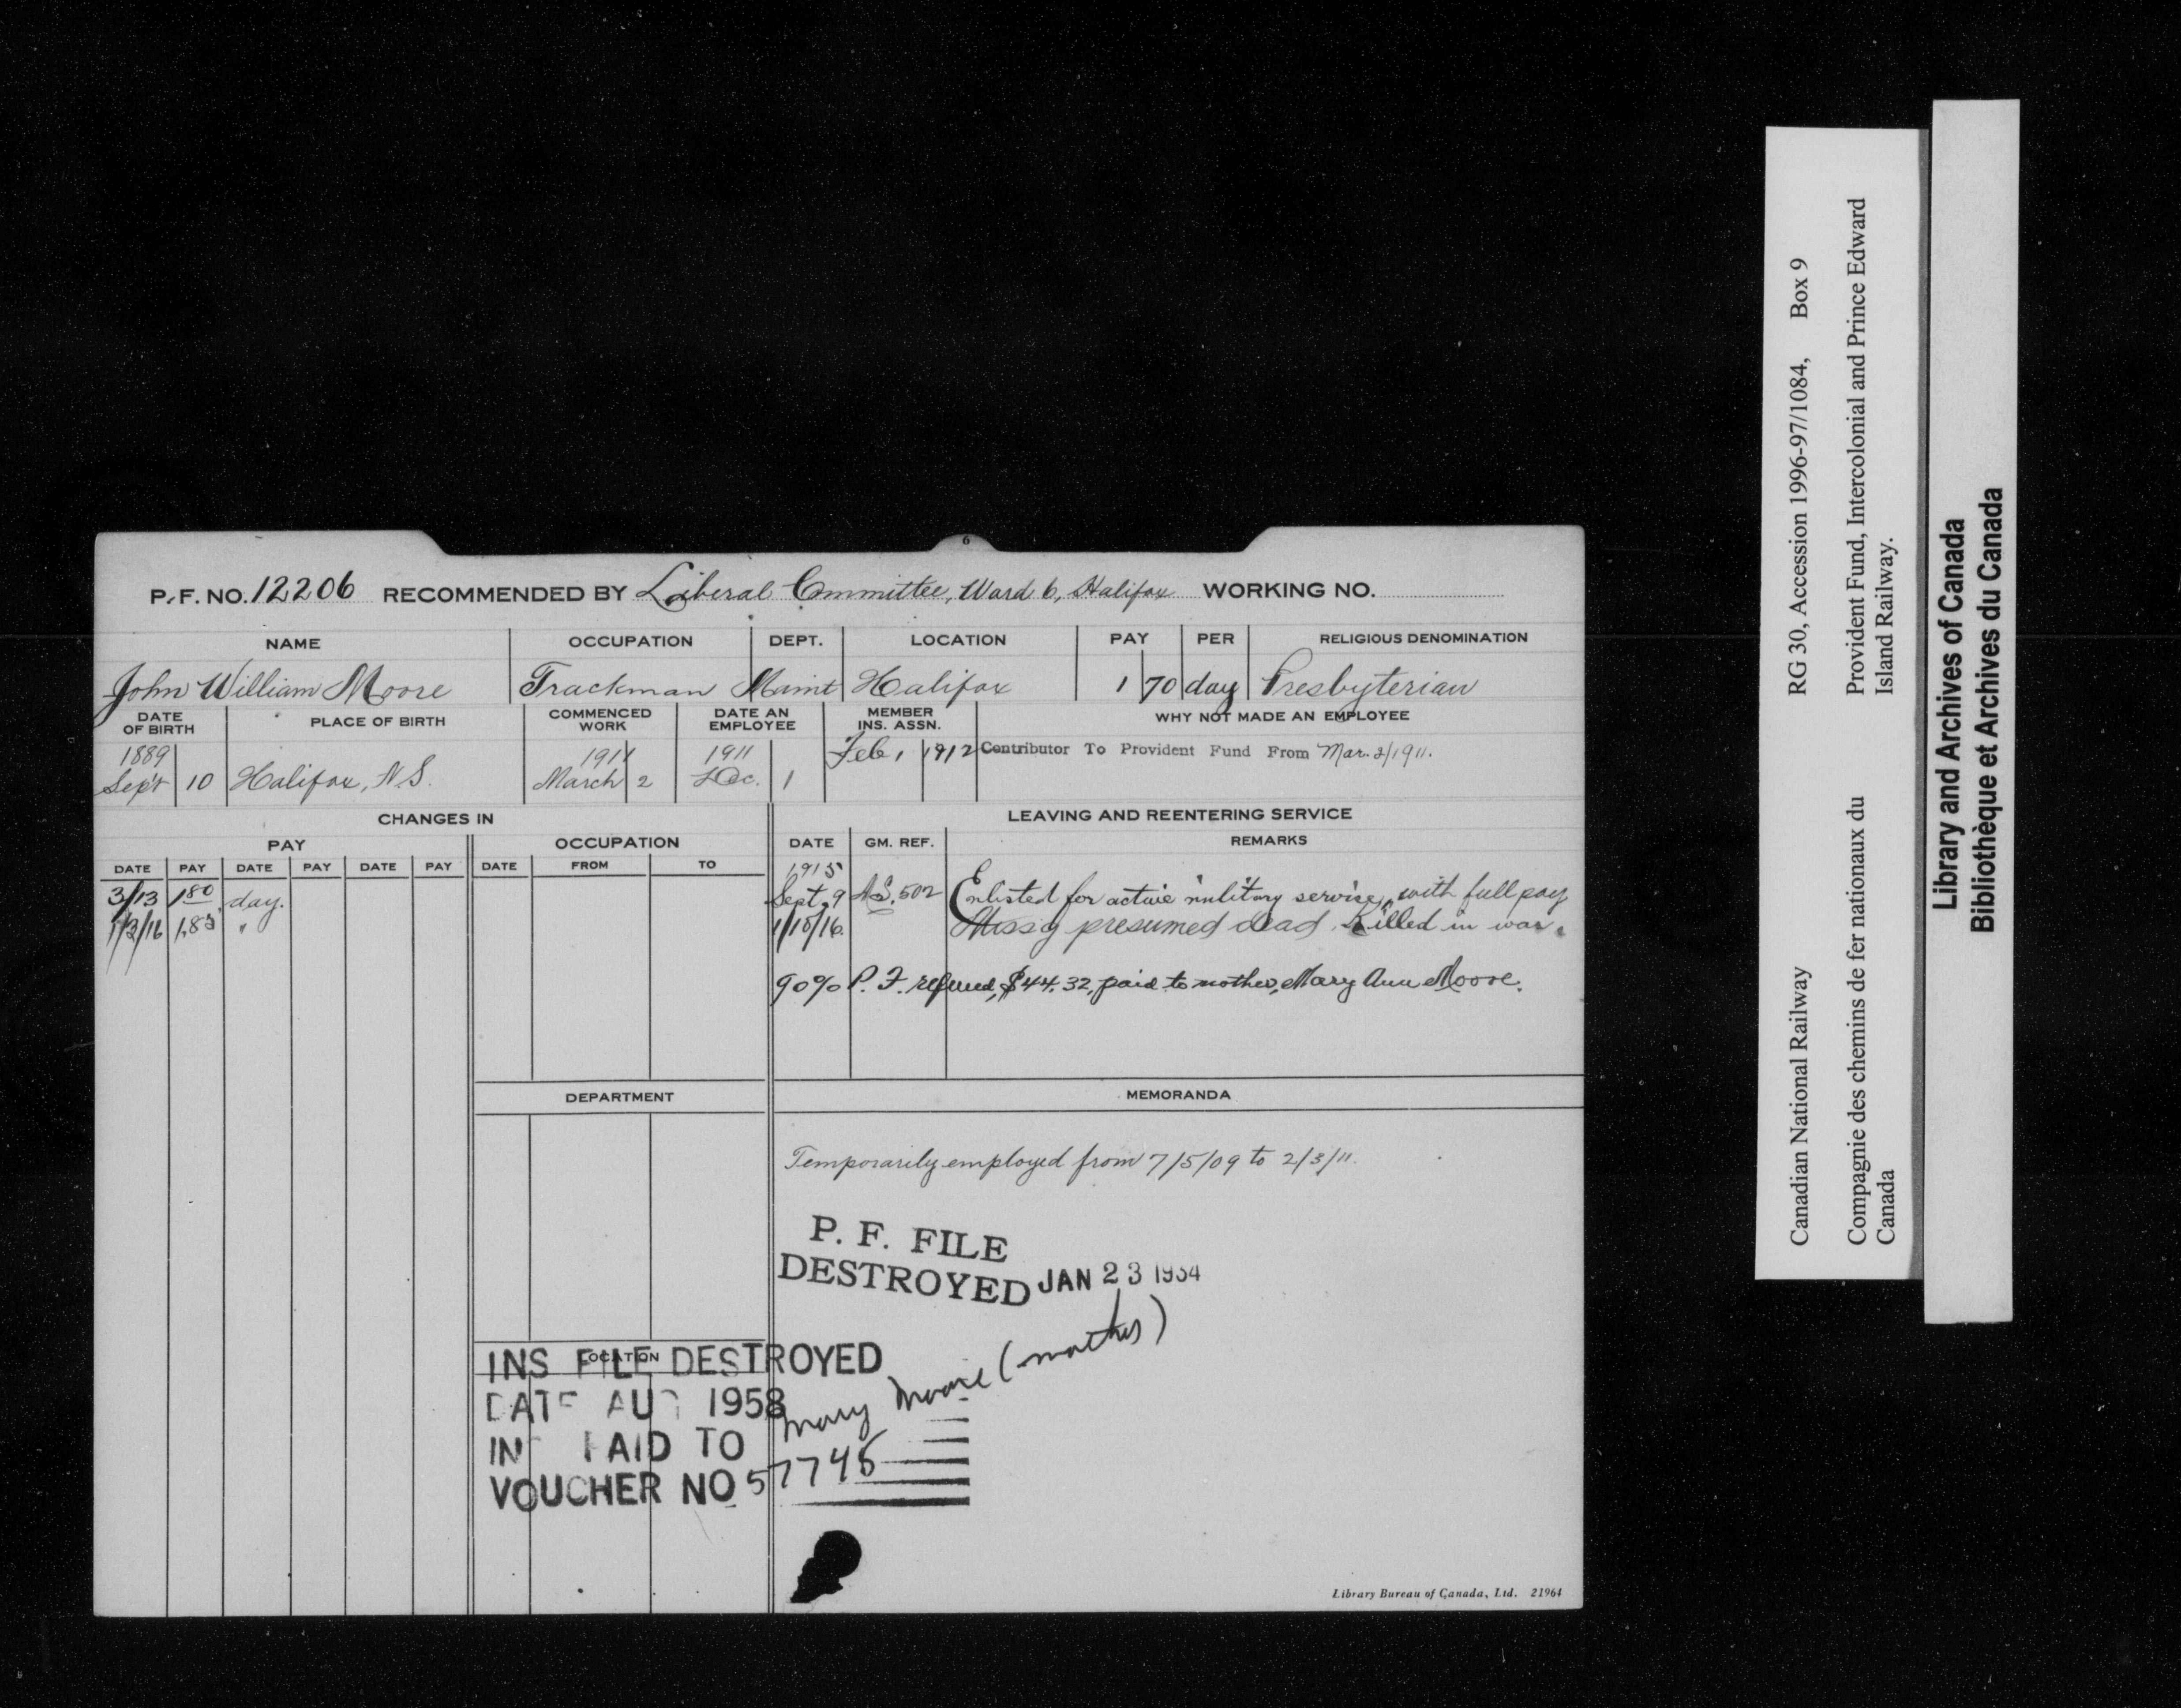 6
P. F. NO. 12206 RECOMMENDED BY Liberal Committee, Ward 6, Halifax WORKING NO.
NAME OCCUPATION DEPT. LOCATION PAY PER RELIGIOUS DENOMINATION
John William Moore Trackman Maint Halifax 1 70 day Presbyterian
DATE OF BIRTH PLACE OF BIRTH COMMENCED WORK DATE AN EMPLOYEE MEMBER INS. ASSN. WHY NOT MADE AN EMPLOYEE
1889 1911 1911 Feb 1 1912 Contributor To Provident Fund From Mar. 2/1911.
Sept 10 Halifax, N.S. March 2 Dec. 1
CHANGES IN LEAVING AND REENTERING SERVICE
PAY OCCUPATION DATE GM. REF. REMARKS
DATE PAY DATE PAY DATE PAY DATE FROM TO
1915
3/13 1 80 day. Sept. 9 A.S. 502 Enlisted for active military service, with full pay
1/3/16 1,85 " 1/10/16 Miss'g presumed dead. Killed in war.
90% P. F. refund, $44.32, paid to mother, Mary Ann Moore.
DEPARTMENT MEMORANDA
Temporarily employed from 7/5/09 to 2/3/11.
P. F. FILE
DESTROYED JAN 23 1934
LOCATION
INS FILE DESTROYED
DATE AUG 1958
INS PAID TO Mary Moore (mother)
VOUCHER NO 57745
Library Bureau of Canada, Ltd. 21964
Canadian National Railway RG 30, Accession 1996-97/1084, Box 9
Compagnie des chemins de fer nationaux du Provident Fund, Intercolonial and Prince Edward
Canada Island Railway.
Library and Archives of Canada
Bibliothèque et Archives du Canada